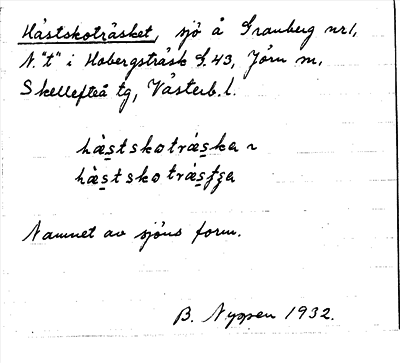 Hästskoträsket, sjö å Granberg nr 1,
N. "t" i Hobergsträsk S. 43, Jörn sn,
Skellefteå tg, Västerb. l.
hàs̱tskotrás̱ka ~
hàs̱tskotrás̱
Namnet av sjöns form.
B. Nyppen 1932.